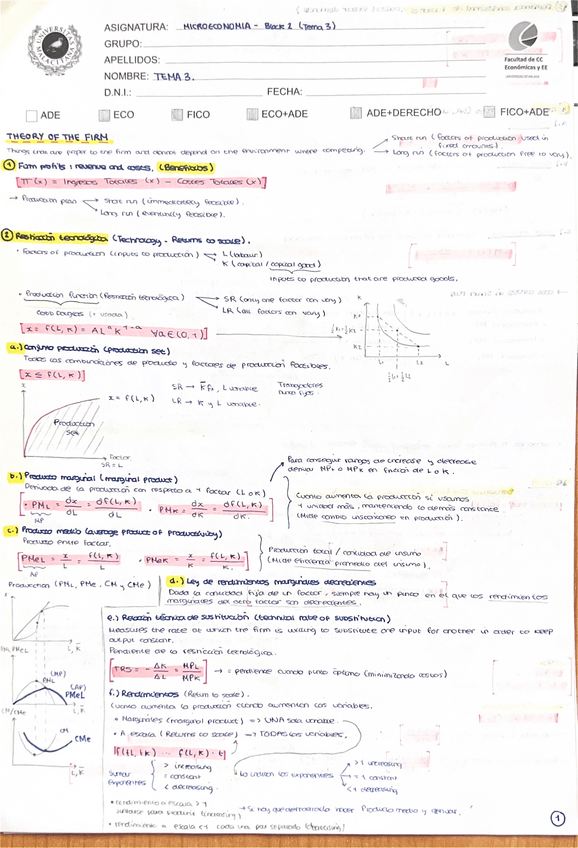 ASIGNATURA: MICROECONOMIA - Block 2 (Tema 3)
GRUPO:
APELLIDOS:
NOMBRE: TEMA 3.
D.N.I.: FECHA:
Facultad de CC
Económicas y EE
UNIVERSIDAD DE MÁLAGA
ADE ECO FICO ECO+ADE ADE+DERECHO FICO+ADE
THEORY OF THE FIRM
Things that are proper to the firm and do not depend on the environment where competing.
Short run (factors of production used in fixed amounts).
Long run (factors of production free to vary).
1 Firm profits: revenue and costs. (Beneficios)
Π(x) = Ingresos Totales (x) - Costes Totales (x)
→ Production plan Short run (immediately feasible).
Long run (eventually feasible).
2 Restricción tecnológica (Technology. Returns to scale).
• Factors of production (inputs to production) L (labour)
K (capital / capital good)
Inputs to production that are produced goods.
• Production function (Restricción tecnológica) SR (only one factor can vary)
LR (all factors can vary)
Cobb Douglas (+ usada)
x = f(L,K) = A L^a K^1-a ∀a∈(0,1)
a.) Conjunto producción (production set)
Todas las combinaciones de producto y factores de producción posibles.
x ≤ f(L,K)
SR → K̄ fijo, L variable
LR → K y L variable.
x = f(L,K)
Production set
Factor
SR = L
Para conseguir rangos de increase y decrease
derivar MPL o MPK en función de L o K.
b.) Producto marginal (marginal product)
Derivada de la producción con respecto a 1 factor (L o K)
• PML = dx/dL = df(L,K)/dL • PMK = dx/dK = df(L,K)/dK.
MP
Cuanto aumenta la producción si usamos
1 unidad más, manteniendo lo demás constante.
(Mide cambio unitario en producción).
c.) Producto medio (average product or productivity)
Producto entre factor.
PMeL = x/L = f(L,K)/L • PMeK = x/K = f(L,K)/K.
AP
Producción total / cantidad de insumo
(Mide eficiencia promedio del insumo).
Producción (PML, PMe, CM y CMe)
d.) Ley de rendimientos marginales decrecientes
Dada la cantidad fija de un factor, siempre hay un punto en el que los rendimientos
marginales del otro factor son decrecientes.
e.) Relación técnica de sustitución (technical rate of substitution)
Measures the rate at which the firm is willing to substitute one input for another in order to keep
output constant.
Pendiente de la restricción tecnológica.
TRS = - ΔK/ΔL = MPL/MPK → = pendiente cuando punto óptimo (minimizando costes)
f.) Rendimientos (Return to scale).
Cuanto aumenta la producción cuando aumentan las variables.
• Marginales (marginal product) => UNA sola variable.
• A escala (Returns to scale) → TODAS las variables.
f(tL, tK) ... f(L,K) · t
Sumar
exponentes
> increasing
= constant
< decreasing.
Lo indican los exponentes
>1 increasing
=1 constant
<1 decreasing
(MP)
PML
(AP)
PMeL
L, K
CM
CMe
L, K
1